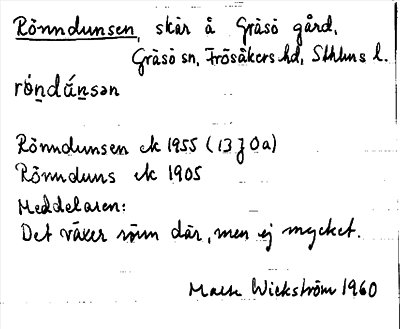 Rönndunsen, skär å Gräsö gård,
Gräsö sn, Frösåkers hd, Sthlms l.
rǿndúnsən
Rönndunsen ek 1955 (13 J 0a)
Rönnduns ek 1905
Meddelaren:
Det växer rönn där, men ej mycket.
Wickström 1960